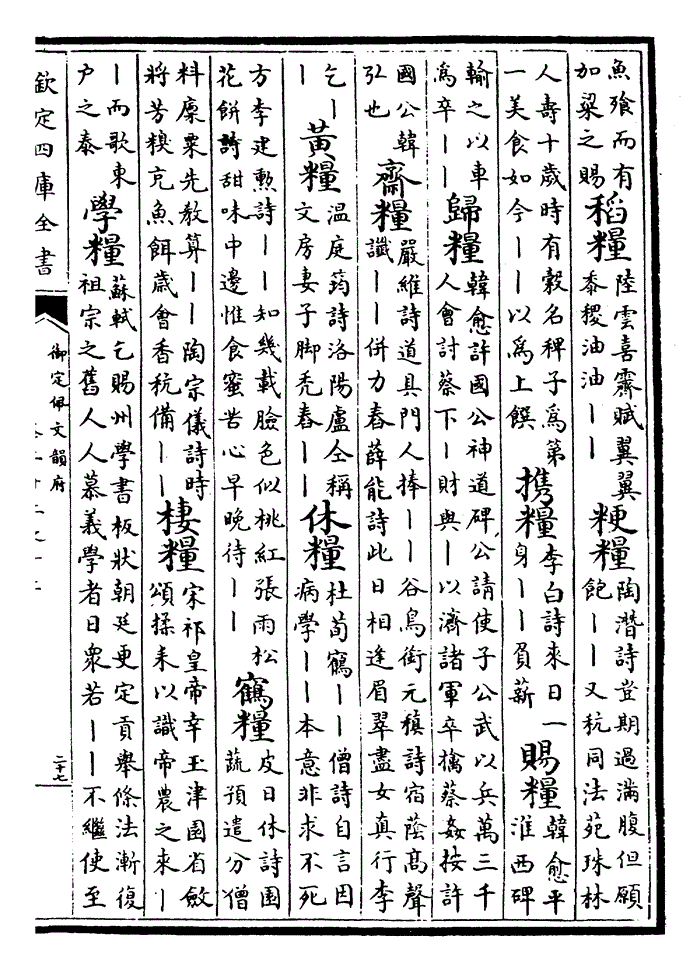 魚飱而有
加粱之賜
稻糧
陸雲喜霽賦翼翼
黍稷油油丨丨
粳糧
陶潛詩豈期過滿腹但願
飽丨丨又秔同法苑珠林
人壽十歲時有穀名稗子為第
一美食如今丨丨以為上饌
携糧
李白詩來日一
身丨丨負薪
賜糧
韓愈平
淮西碑
輸之以車
為卒丨丨
歸糧
韓愈許國公神道碑公請使子公武以兵萬三千
人會討蔡下丨財與丨以濟諸軍卒擒蔡姦按許
國公韓
弘也
齋糧
嚴維詩道具門人捧丨丨谷鳥銜元稹詩宿蔭髙聲
讖丨丨併力舂薛能詩此日相逢眉翠盡女真行李
乞丨
丨
黃糧
溫庭筠詩洛陽盧仝稱
文房妻子脚禿舂丨丨
休糧
杜荀鶴丨丨僧詩自言因
病學丨丨本意非求不死
方李建勲詩丨丨知幾載臉色似桃紅張雨松
花餅詩甜味中邊惟食蜜苦心早晚待丨丨
鶴糧
皮日休詩園
蔬預遣分僧
料廪粟先教算丨丨陶宗儀詩時
將芳糗充魚餌歲會香秔備丨丨
棲糧
宋祁皇帝幸玉津園省斂
頌揉耒以識帝農之來丨
丨而歌東
户之泰
學糧
蘇軾乞賜州學書板狀朝廷更定貢舉條法漸復
祖宗之舊人人慕義學者日衆若丨丨不繼使至
欽定四庫全書
御定佩文韻府
二十七